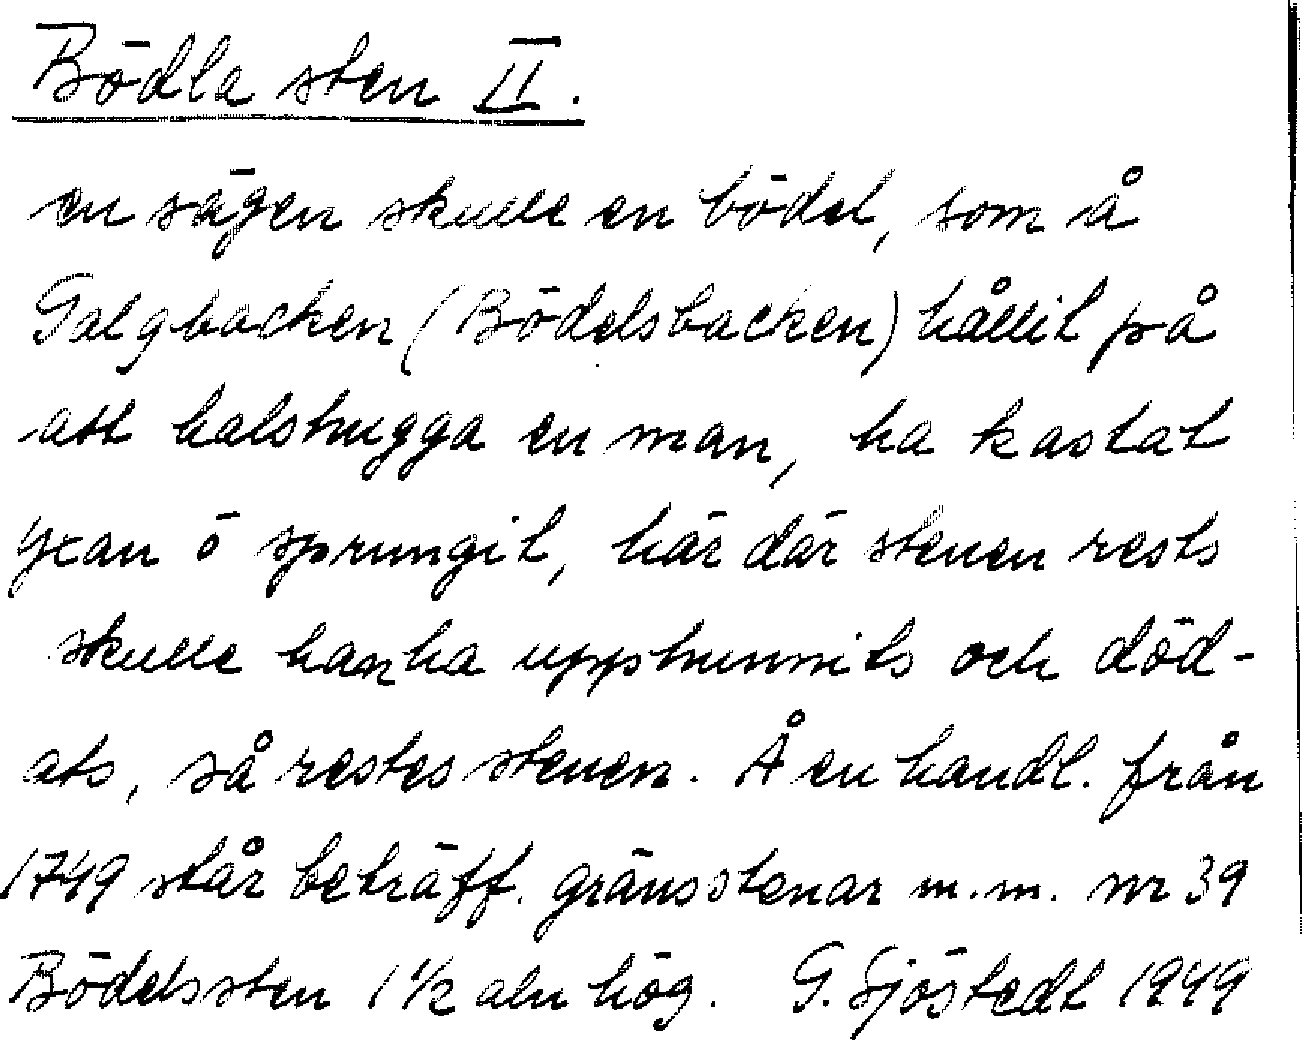 Bödla sten II.
en sägen skulle en bödel, som å
Galgbacken (Bödelsbacken) hållit på
att halshugga en man, ha kastat
yxan ō sprungit, här där stenen rests
skulle han ha upphunnits och död-
ats, så restes stenen. Å en handl. från
1749 står beträff. gränsstenar m.m. nr 39
Bödelssten 1 1/2 aln hög. G. Sjöstedt 1949